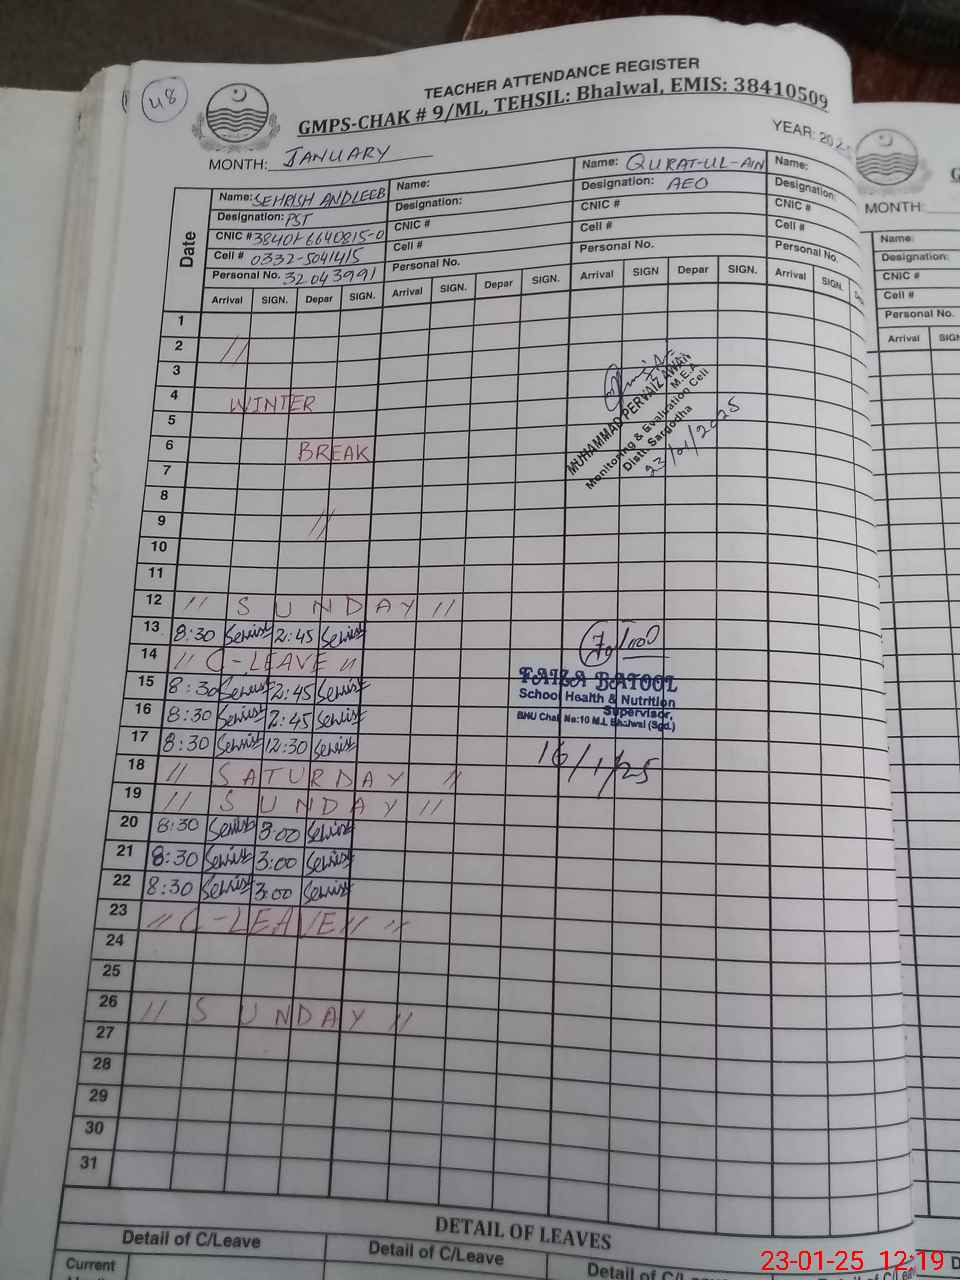 48
TEACHER ATTENDANCE REGISTER
GMPS-CHAK # 9/ML, TEHSIL: Bhalwal, EMIS: 38410509
MONTH: JANUARY
YEAR: 202
Date
Name: SEHRISH ANDLEEB Name: Name: QURAT-UL-AIN Name:
Designation: PST Designation: Designation: AEO Designation:
CNIC # 38401-6640815-0 CNIC # CNIC # CNIC #
Cell # 0332-5041415 Cell # Cell # Cell #
Personal No. 32043991 Personal No. Personal No. Personal No.
Arrival SIGN. Depar SIGN. Arrival SIGN. Depar SIGN. Arrival SIGN Depar SIGN. Arrival SIGN.
1
2 //
3
4 WINTER
5
6 BREAK
7
8
9 //
10
11
12 // SUNDAY //
13 8:30 2:45
14 // C-LEAVE //
15 8:30 2:45
16 8:30 2:45
17 8:30 12:30
18 // SATURDAY //
19 // SUNDAY //
20 8:30 3:00
21 8:30 3:00
22 8:30 3:00
23 // C-LEAVE // //
24
25
26 // SUNDAY //
27
28
29
30
31
MUHAMMAD PERVAIZ AWAN
M.E.A
Monitoring & Evaluation Cell
Distt. Sargodha
23/01/2025
FAIZA BATOOL
School Health & Nutrition
Supervisor,
BHU Chak No:10 M.L Bhalwal (Sgd.)
16/1/25
DETAIL OF LEAVES
Detail of C/Leave Detail of C/Leave Detail of C/Leave
Current
G
MONTH:
Name:
Designation:
CNIC #
Cell #
Personal No.
Arrival SIGN
23-01-25 12:19